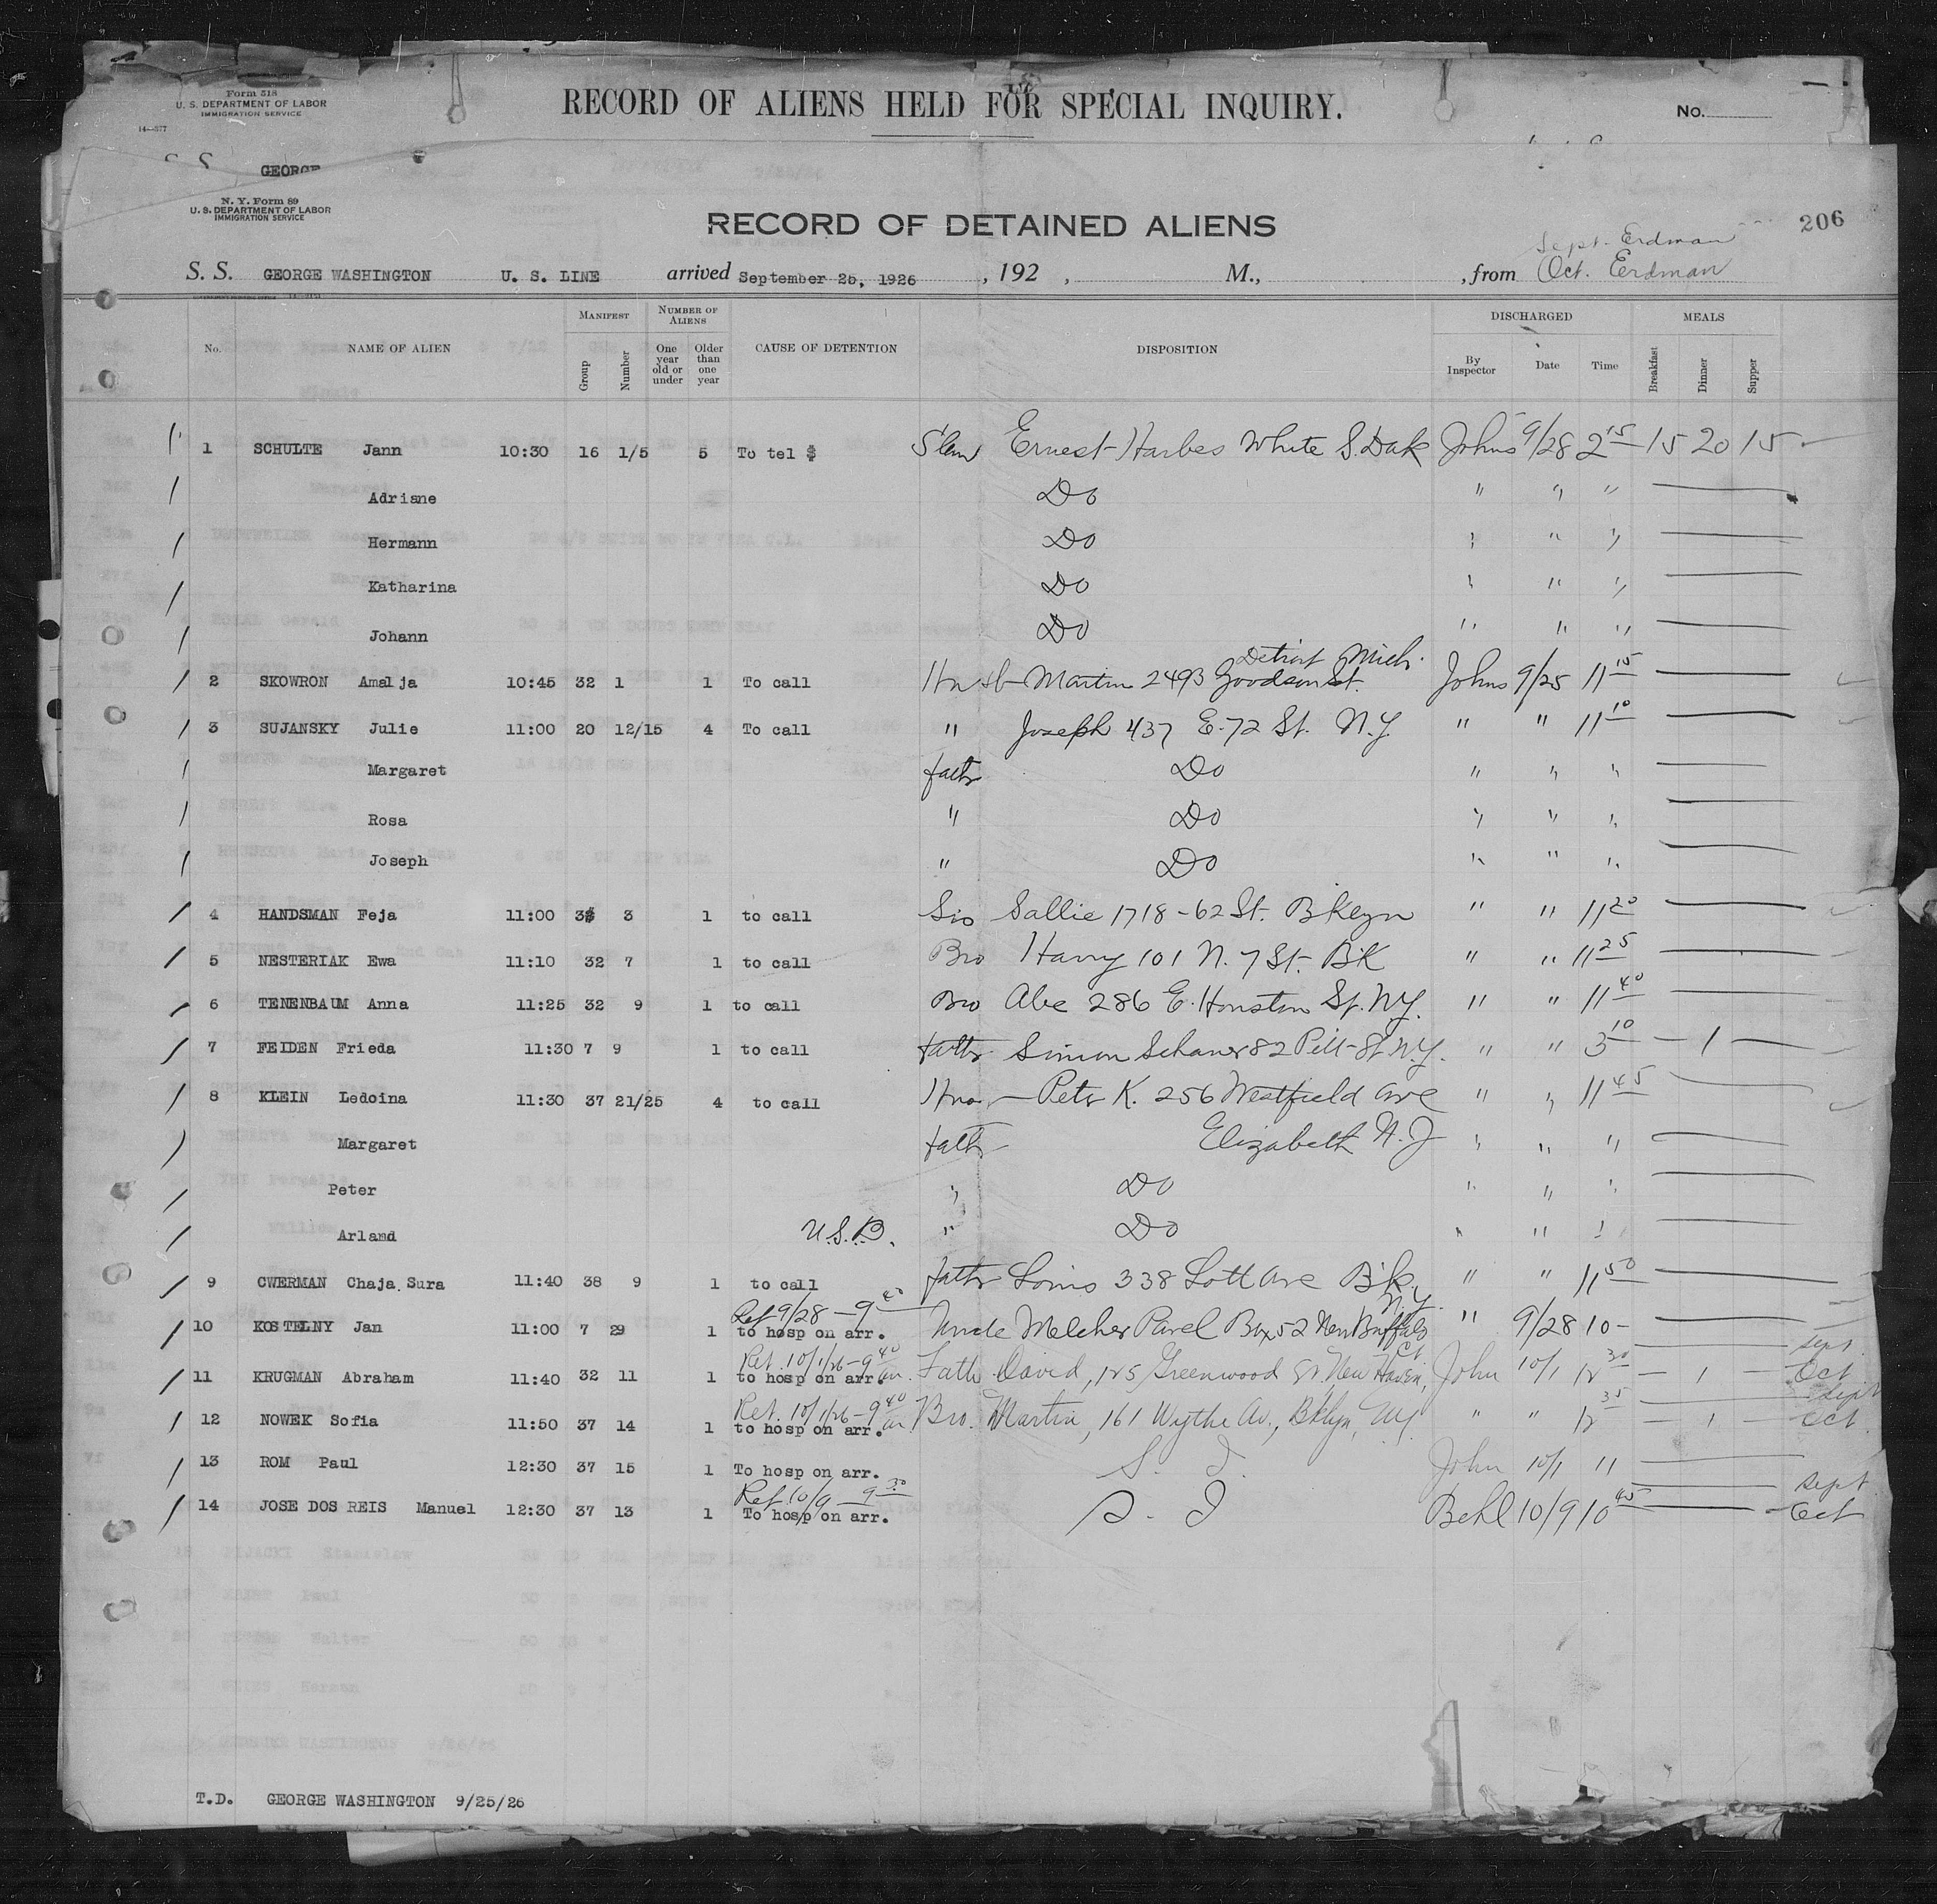 Form 518
U. S. DEPARTMENT OF LABOR
IMMIGRATION SERVICE
14-577
RECORD OF ALIENS HELD FOR SPECIAL INQUIRY.
No.
S. S. GEORGE
N. Y. Form 89
U. S. DEPARTMENT OF LABOR
IMMIGRATION SERVICE
RECORD OF DETAINED ALIENS
206
Sept. Erdman
S. S. GEORGE WASHINGTON U. S. LINE arrived September 25, 1926, 192 , M., , from Oct. Erdman
MANIFEST NUMBER OF ALIENS DISCHARGED MEALS
No. NAME OF ALIEN Group Number One year old or under Older than one year CAUSE OF DETENTION DISPOSITION By Inspector Date Time Breakfast Dinner Supper
1 SCHULTE Jann 10:30 16 1/5 5 To tel $ Ernest Harbes White S. Dak Johns 9/28 2 15 15 20 15
Adriane Do " " "
Hermann Do " " "
Katharina Do " " "
Johann Do " " "
Detroit Mich.
2 SKOWRON Amalja 10:45 32 1 1 To call Husb Martin 2493 Goodson St. Johns 9/25 11 15
3 SUJANSKY Julie 11:00 20 12/15 4 To call " Joseph 437 E. 72 St. N.Y. " " 11 10
Margaret fath Do " " "
Rosa " Do " " "
Joseph " Do " " "
4 HANDSMAN Feja 11:00 3 1 to call Sis Sallie 1718-62 St. Bklyn " " 11 20
5 NESTERIAK Ewa 11:10 32 7 1 to call Bro Harry 101 N. 7 St. Bk " " 11 25
6 TENENBAUM Anna 11:25 32 9 1 to call Bro Abe 286 E. Houston St. N.Y. " " 11 40
7 FEIDEN Frieda 11:30 7 9 1 to call fath Simon 82 Pitt St N.Y. " " 3 10 — 1 —
8 KLEIN Ledoina 11:30 37 21/25 4 to call Peter K. 256 Westfield Ave " " 11 45
Margaret fath Elizabeth N.J " " "
Peter " Do " " "
Arland U.S.B. " Do " " "
9 CWERMAN Chaja Sura 11:40 38 9 1 to call fath Louis 338 Lott Ave Bk. " " 11 50
Ret 9/28 — 9 40 N.Y.
10 KOSTELNY Jan 11:00 7 29 1 to hosp on arr. Uncle Melcher Pavel Box 52 New Buffalo " 9/28 10 —
Ret. 10/1/26 — 9 40 am. Ct. Sept
11 KRUGMAN Abraham 11:40 32 11 1 to hosp on arr. Fath David, 125 Greenwood St. New Haven, John 10/1 12 30 — 1 — Oct
Ret. 10/1/26 — 9 40 am Sept
12 NOWEK Sofia 11:50 37 14 1 to hosp on arr. Bro. Martin, 161 Wythe Av., Bklyn, NY. " " 12 35 — 1 — Oct.
13 ROM Paul 12:30 37 15 1 To hosp on arr. S. I. John 10/1 11
Ret. 10/9 — 9 30 Sept
14 JOSE DOS REIS Manuel 12:30 37 13 1 To hosp on arr. S. I Behl 10/9 10 45 — Oct
T.D. GEORGE WASHINGTON 9/25/26